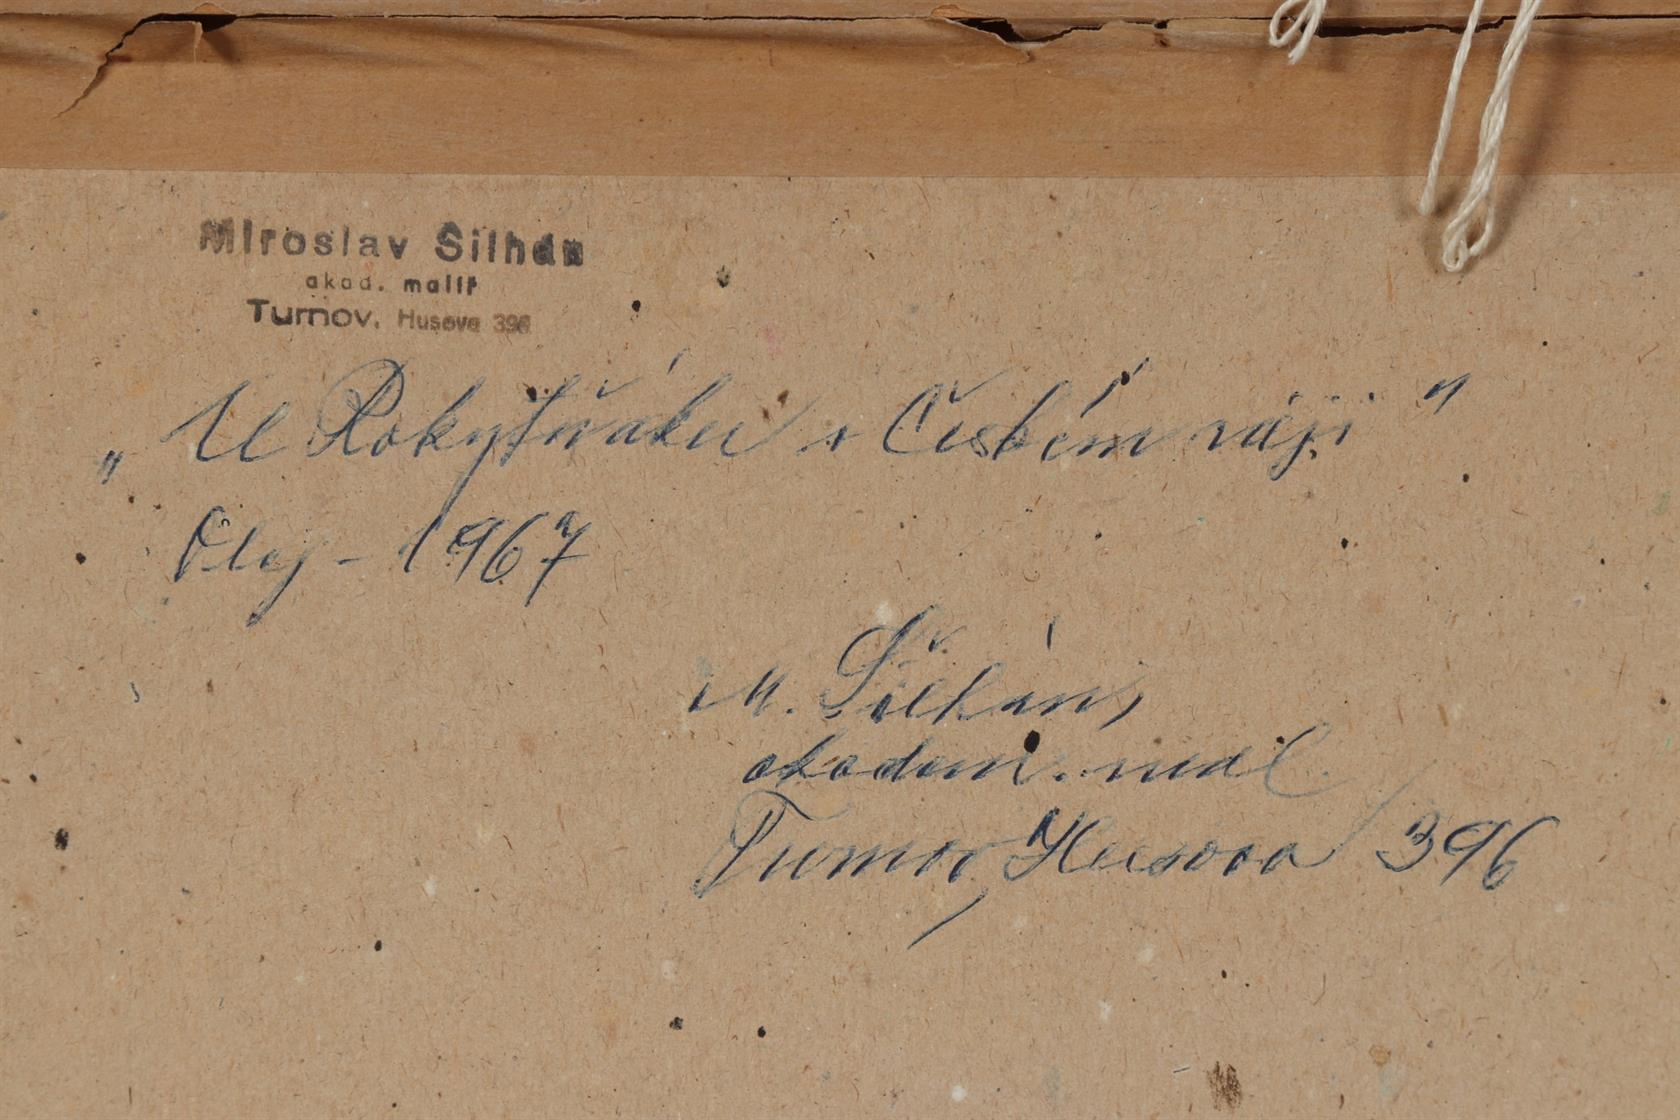 Miroslav Šilhán
akad. malíř
Turnov, Husova 396
„U Rokytňáku v Českém ráji"
Olej - 1967
M. Šilhán,
akadem. mal.
Turnov, Husova 396